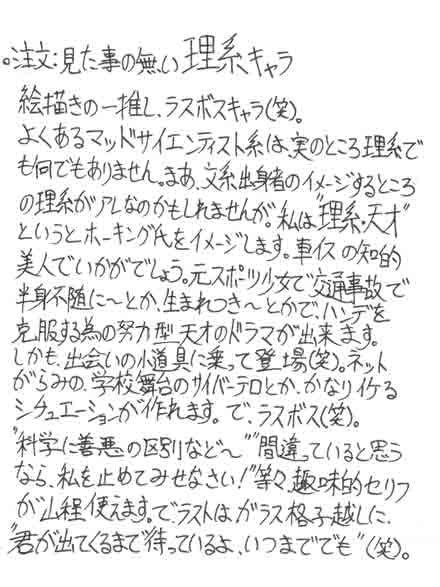 。注文:見た事の無い理系キャラ
絵描きの一推し、ラスボスキャラ(笑)。
よくあるマッドサイエンティスト系は、実のところ理系で
も何でもありません。まあ、文系出身者のイメージするところ
の理系がアレなのかもしれませんが。私は"理系・天才"
というとホーキング氏をイメージします。車イスの知的
美人でいかがでしょう。元スポーツ少女で"交通事故で
半身不随に〜とか、生まれつき〜とかで、ハンデを
克服する為の努力型天才のドラマが出来ます。
しかも、出会いの小道具に乗って登場(笑)。ネット
がらみの、学校舞台のサイバーテロとか、かなりイケる
シチュエーションが作れます。で、ラスボス(笑)。
"科学に善悪の区別など〜""間違っていると思う
なら、私を止めてみせなさい!"等々、趣味的セリフ
が山程使えます。で、ラストはガラス格子越しに、
"君が出てくるまで待っているよ、いつまででも"(笑)。